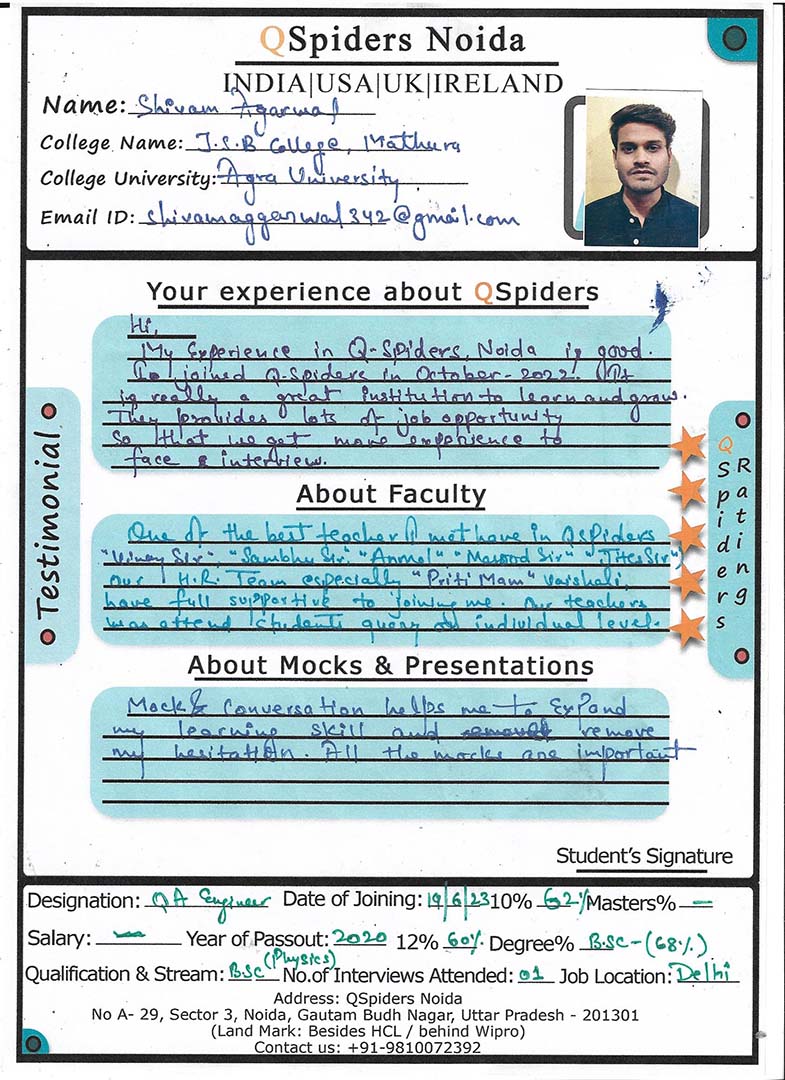 QSpiders Noida
INDIA|USA|UK|IRELAND
Name: Shivam Agarwal
College Name: J.S.B College, Mathura
College University: Agra University
Email ID: shivamaggarwal342@gmail.com
Your experience about QSpiders
Hi,
My Experience in Q-Spiders, Noida is good.
I joined Q-Spiders in October-2022. It
is really a great institution to learn and grow.
They provides lots of job opportunity
So that we get more experience to
face interview.
About Faculty
One of the best teacher I met have in QSpiders
"Vinay Sir", "Sambhu Sir" "Anmol" "Masood Sir" "Jites Sir"
our H.R. Team especially "Priti Mam" Vaishali,
have full supportive to joining me. Our teachers
was attend students query individual level.
About Mocks & Presentations
Mock & Conversation helps me to Expand
my learning skill and remove
my hesitation. All the mocks are important
Testimonial
QSpiders
Ratings
Student's Signature
Designation: QA Engineer Date of Joining: 19/6/23 10% 62% Masters% —
Salary: — Year of Passout: 2020 12% 60% Degree% B.SC-(68%)
Qualification & Stream: BSC (Physics) No.of Interviews Attended: 01 Job Location: Delhi
Address: QSpiders Noida
No A- 29, Sector 3, Noida, Gautam Budh Nagar, Uttar Pradesh - 201301
(Land Mark: Besides HCL / behind Wipro)
Contact us: +91-9810072392